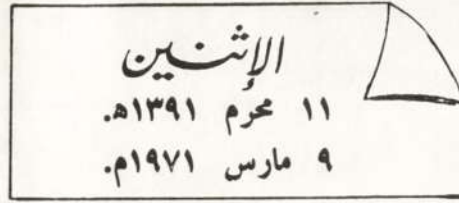 الإثنين
١١ محرم ١٣٩١هـ.
٩ مارس ١٩٧١م.